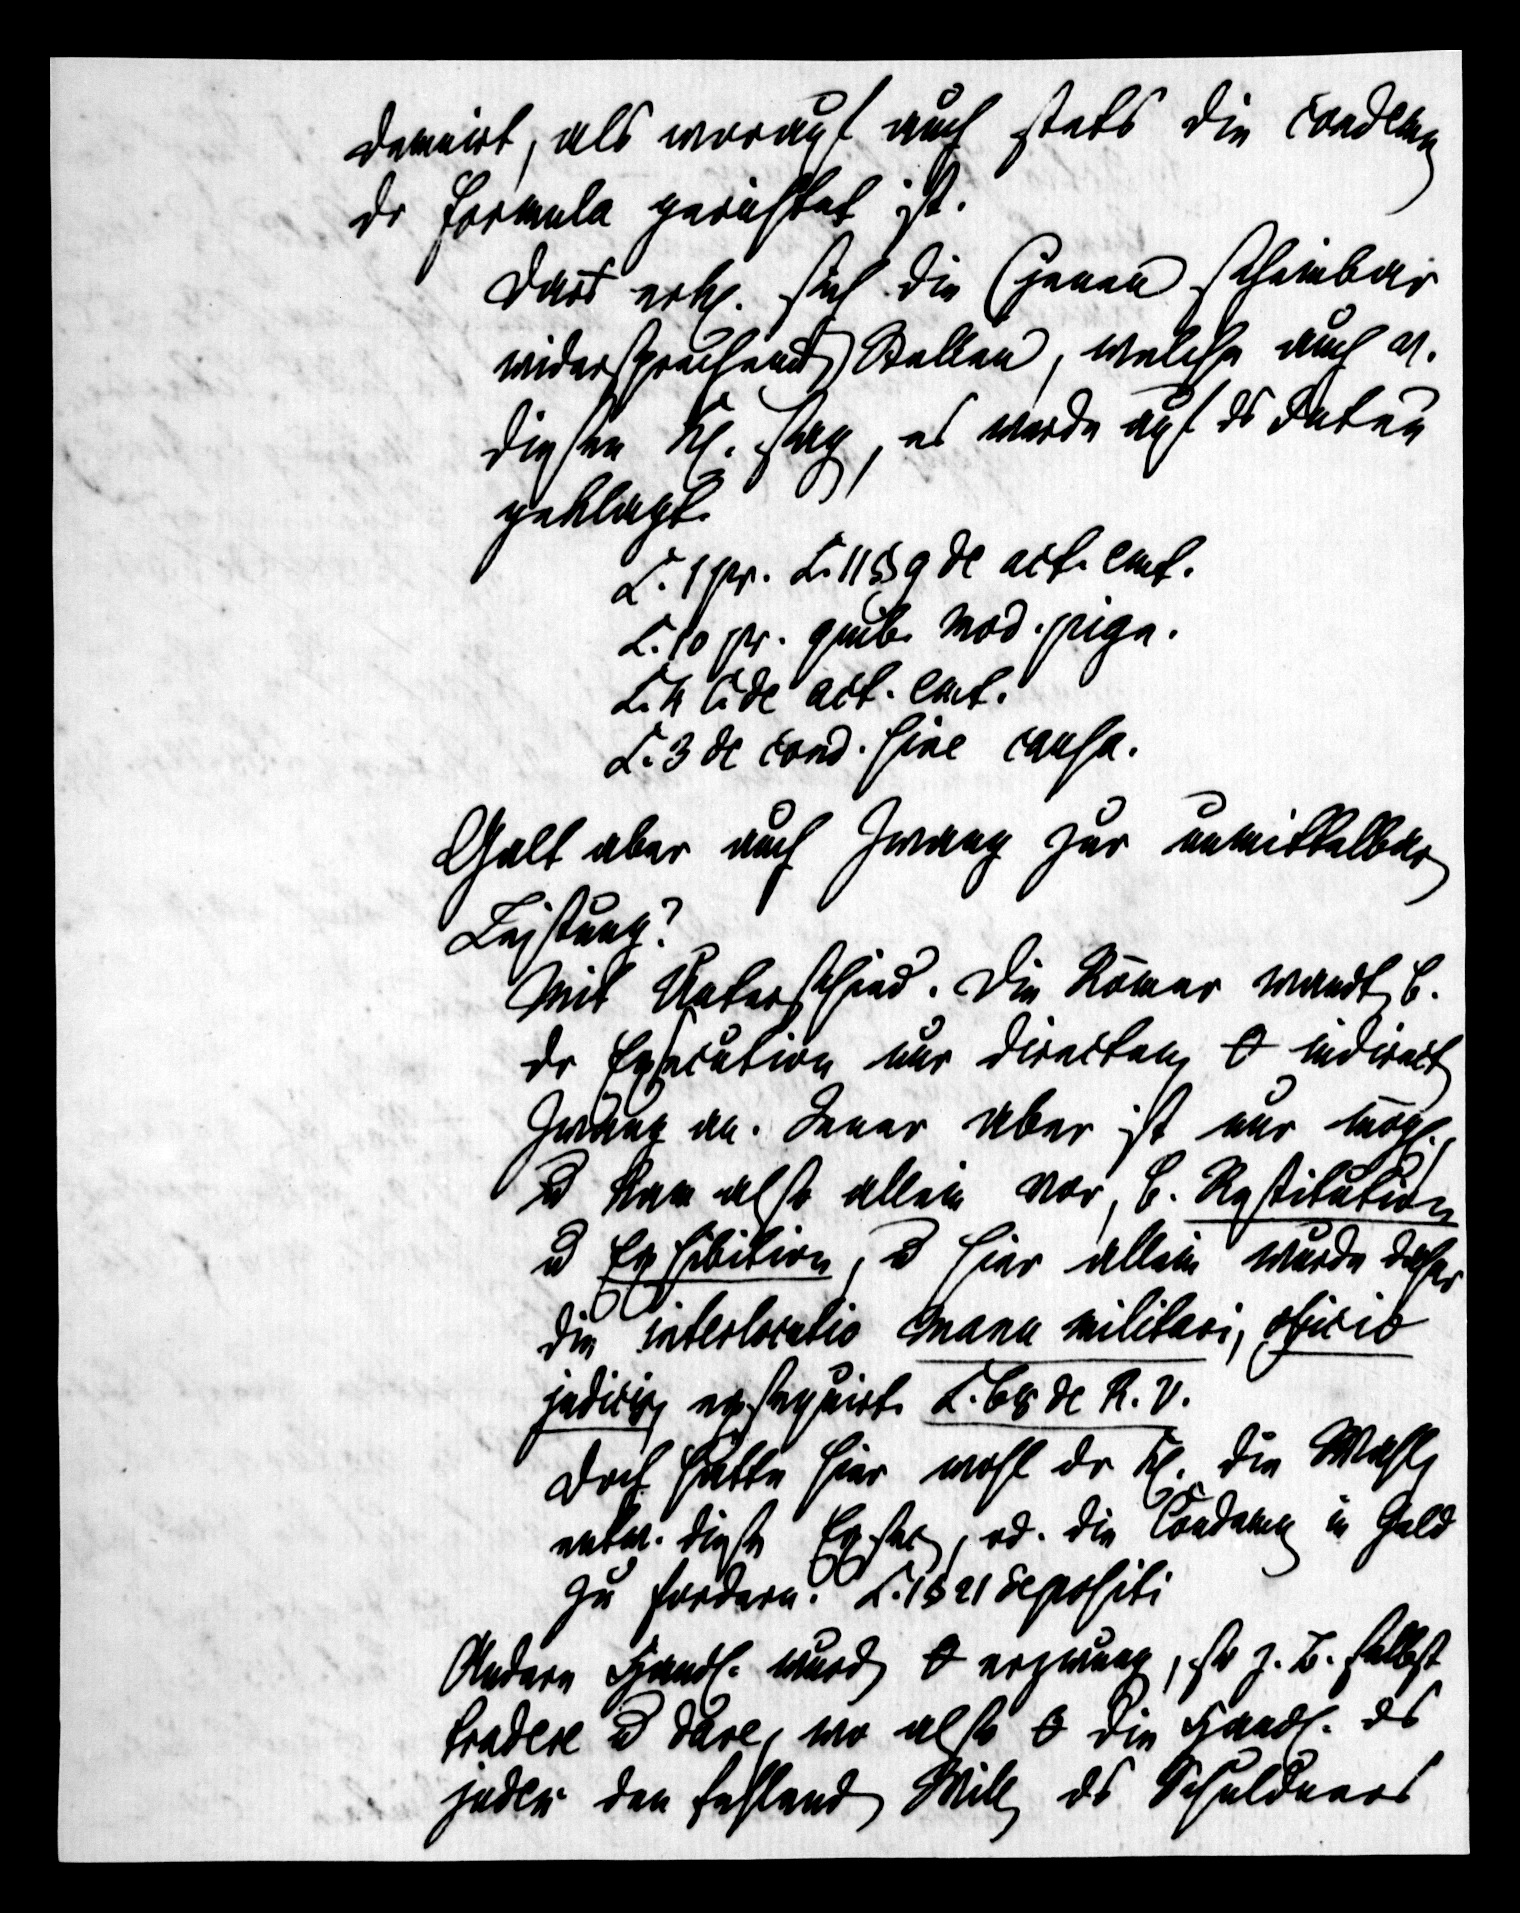 demnirt, als worauf auch stets die condemn
dr formula gerichtet ist.
Dars erkl. sich die (jenen) scheinbar
widersprechend Stellen, welche auch v.
diesen Kl. sag, es werde auf ds Daten
geklagt.
L. 1 pr. L. 11 § 9 de act. emt.
L. 10 pr. quib. mod. pign.
L. 4 C. de act. emt.
L. 3 de cond. sine causa.
Galt aber auch Zwang zur unmittelbar
Leistung?
Mit Unterschied. Die Römer wandt b.
dr Execution nur directen, θ indirect
Zwang an. Jener aber ist nur mögl.,
u kam also allein vor, b. Restitution
u Exhibition, u hier allein wurde daher
die interlocutio manu militari, officio
judicis exsequirt. L. 68 de R. V.
Doch hatte hier wohl dr Kl. die Wahl,
entw. diese Exsec, od. die Condemn in Geld
zu fordern. L. 1 § 21 depositi
Andere Handl. wurd θ erzwung, so z. B. selbst
tradere u dare, wo also θ die Handl. ds
judex den fehlend Will ds Schuldners